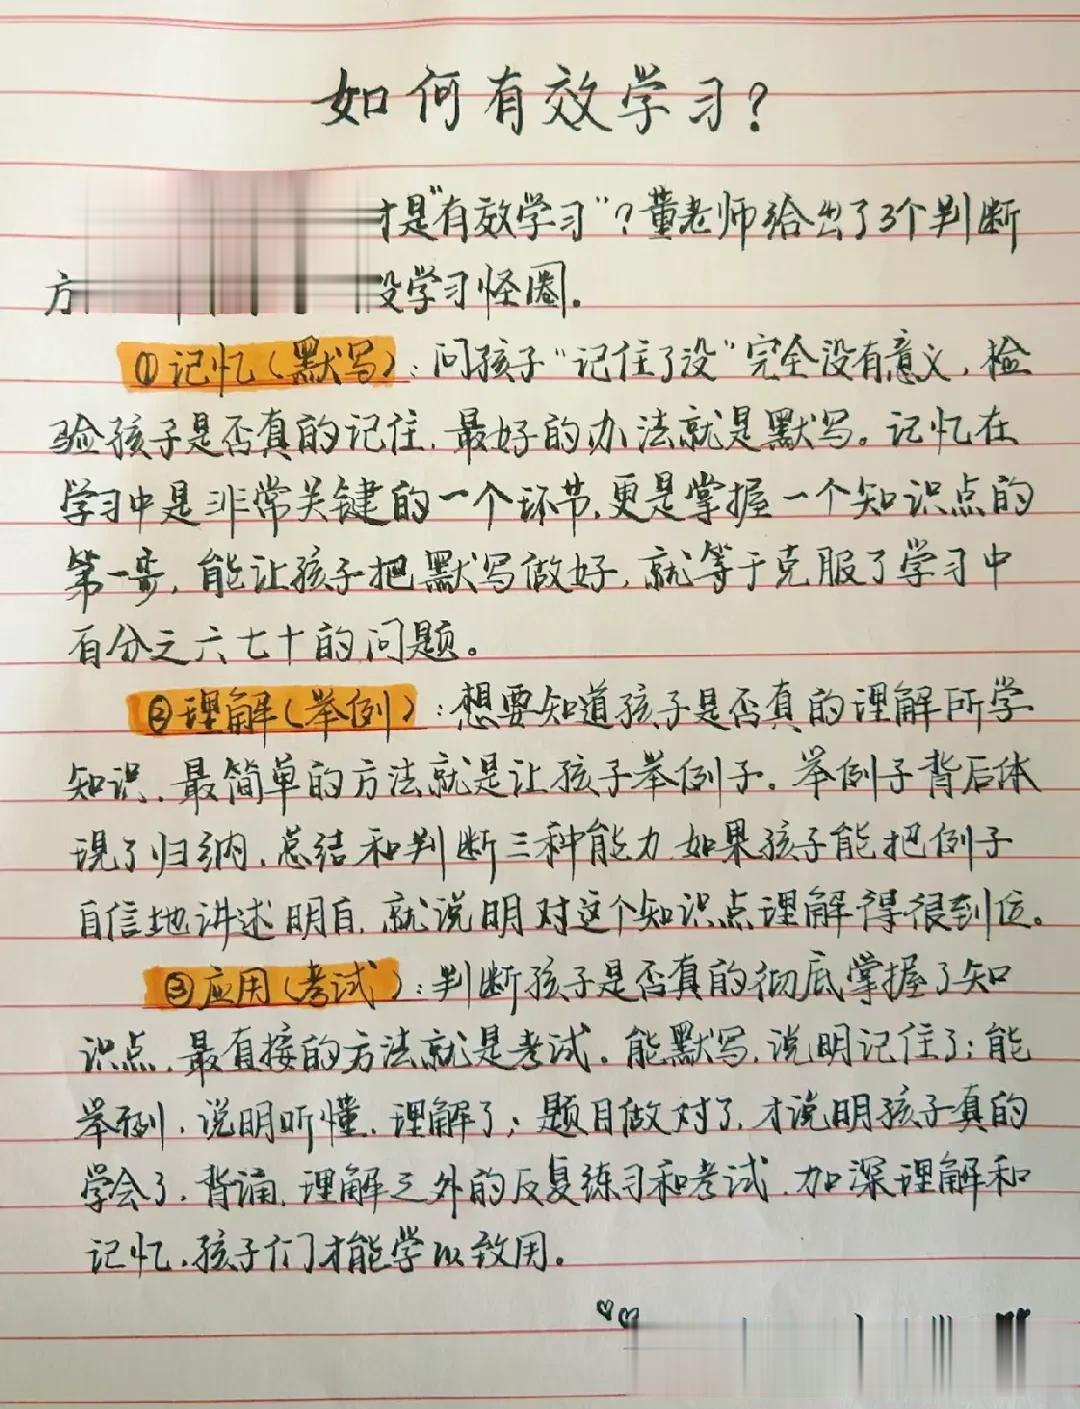 如何有效学习?
才是"有效学习"?董老师给出了3个判断
方 学习怪圈。
①记忆(默写):问孩子"记住了没"完全没有意义,检
验孩子是否真的记住,最好的办法就是默写。记忆在
学习中是非常关键的一个环节,更是掌握一个知识点的
第一步,能让孩子把默写做好,就等于克服了学习中
百分之六七十的问题。
②理解(举例):想要知道孩子是否真的理解所学
知识,最简单的方法就是让孩子举例子。举例子背后体
现了归纳、总结和判断三种能力,如果孩子能把例子
自信地讲述明白,就说明对这个知识点理解得很到位。
③应用(考试):判断孩子是否真的彻底掌握了知
识点,最直接的方法就是考试。能默写,说明记住了;能
举例,说明听懂、理解了;题目做对了,才说明孩子真的
学会了,背诵、理解之外的反复练习和考试,加深理解和
记忆,孩子们才能学以致用。